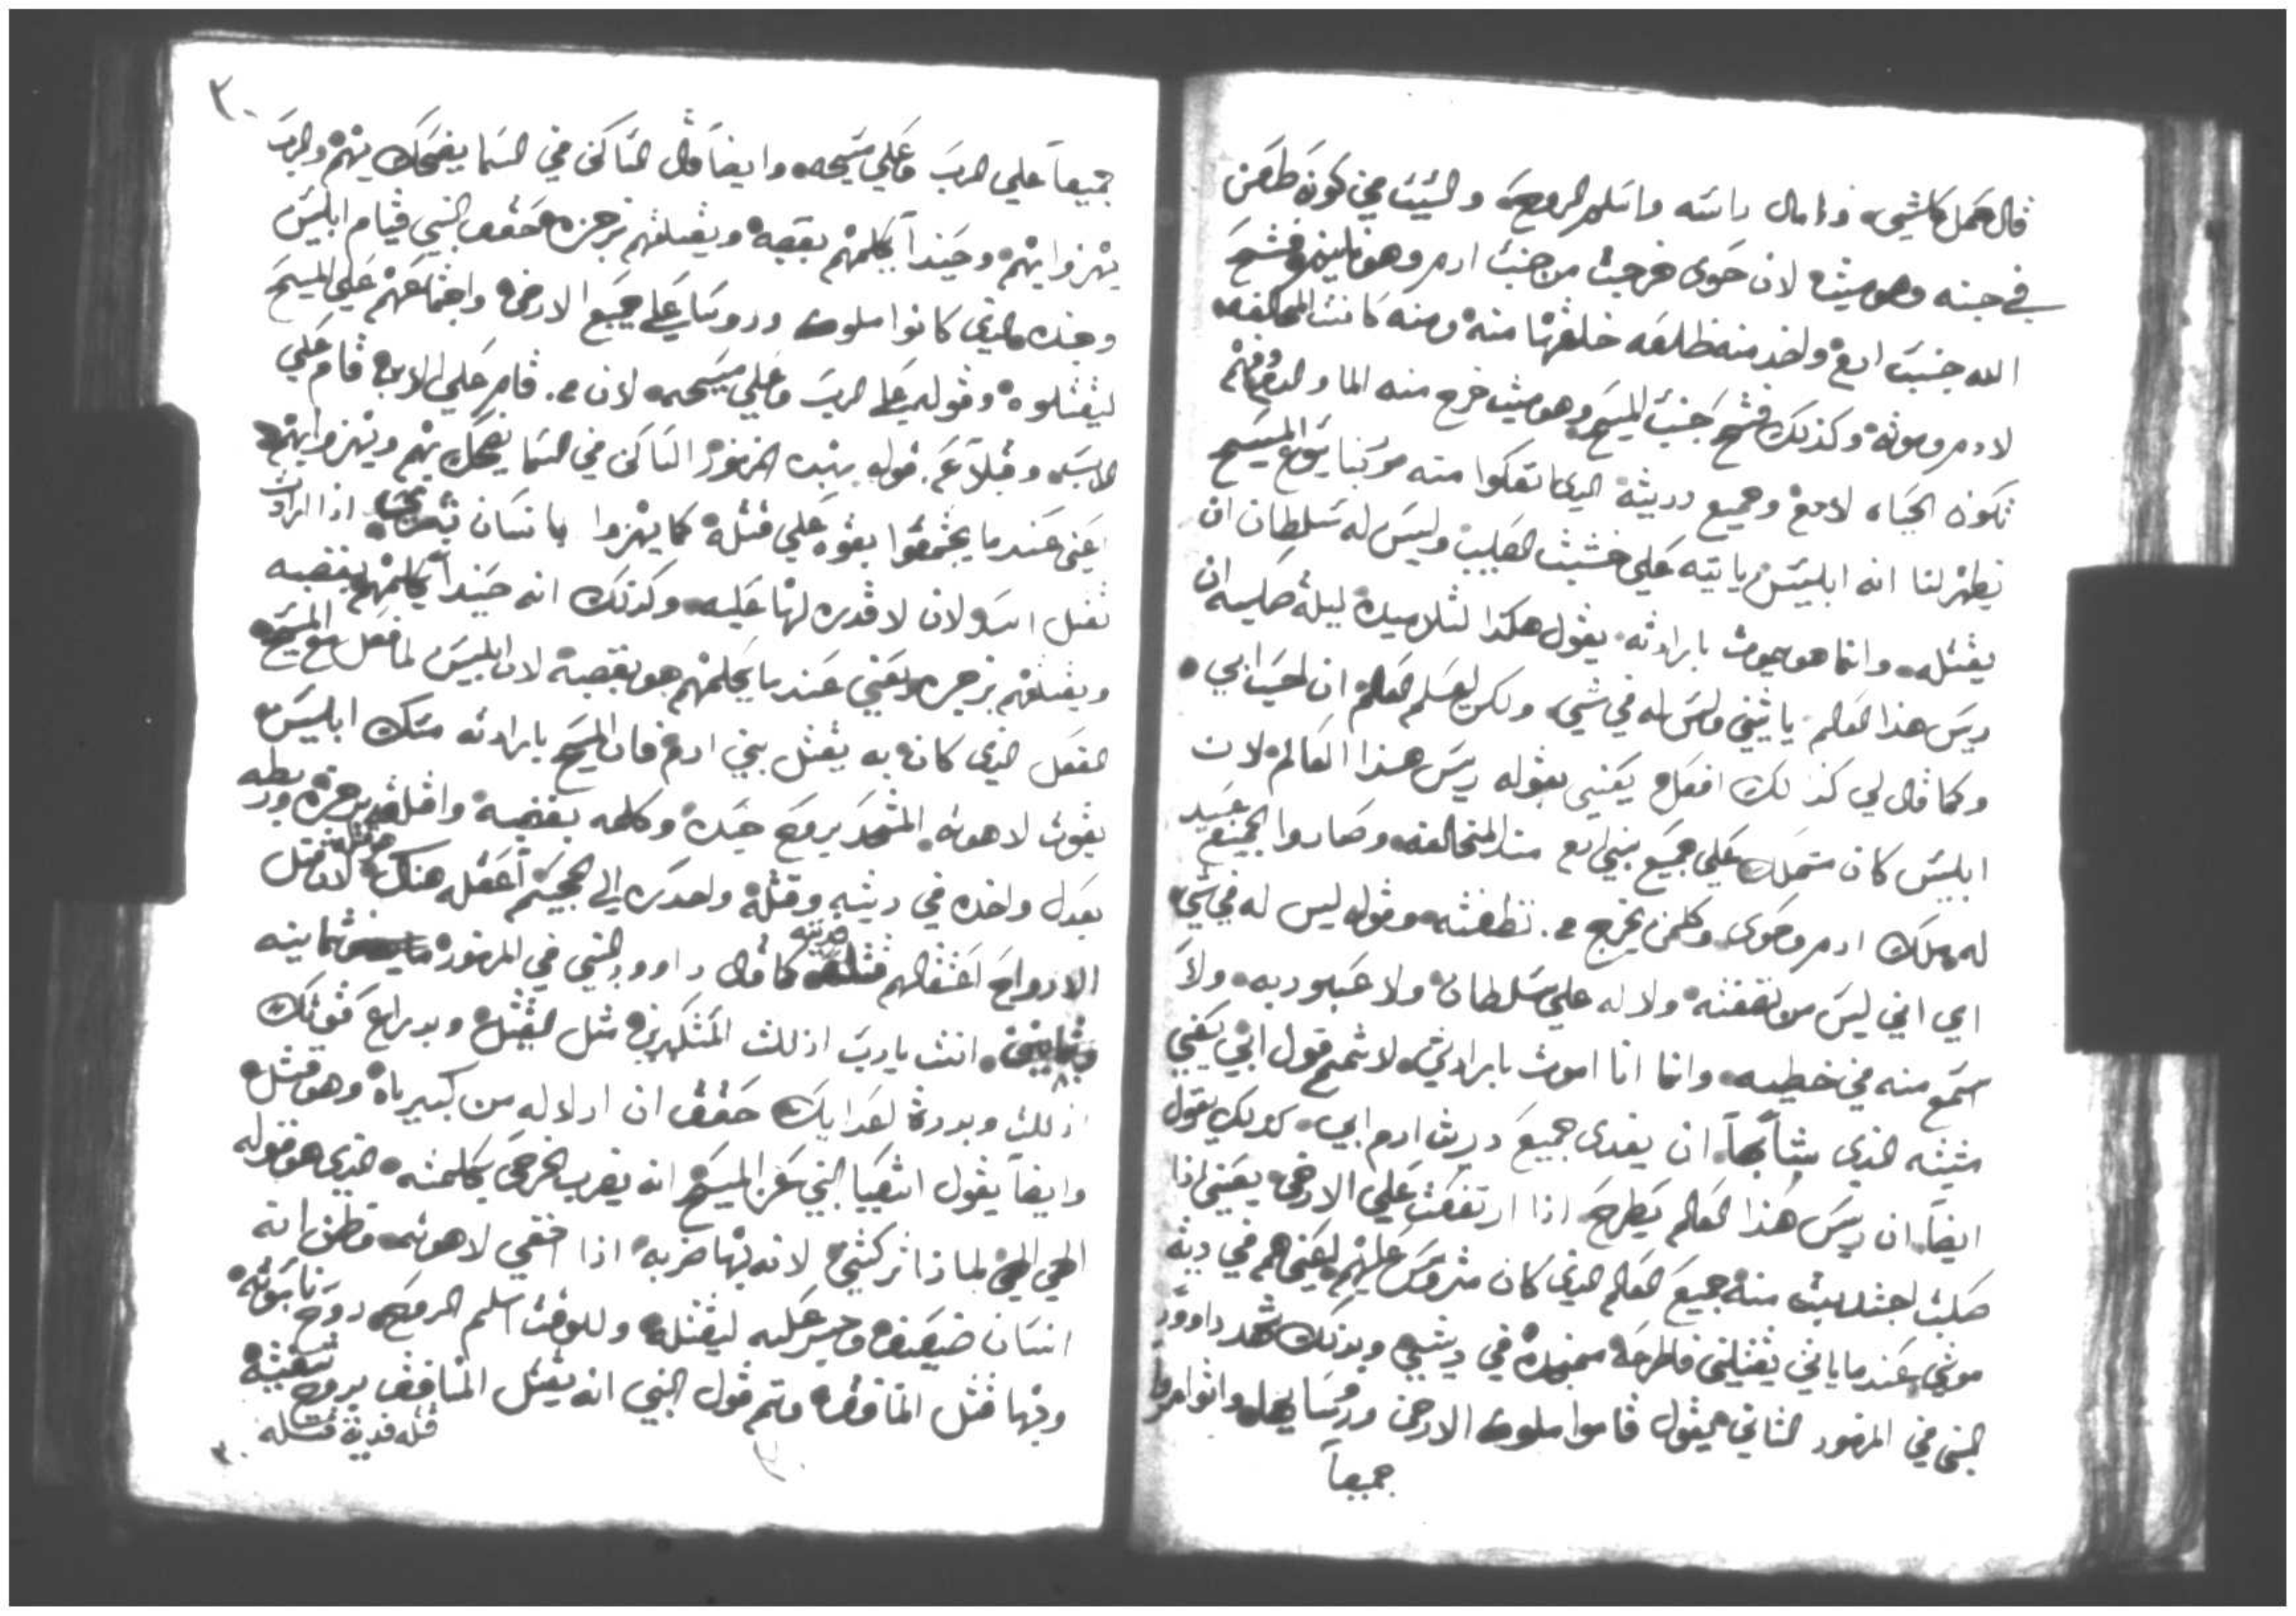 قال كمل كلشي وامال راسه واسلم الروح والسبب في كونه طعن
في جنبه وهو ميت لان حوى خرجت من جنب ادم وهو نايم وفتح
الله جنب ادم واخد منه ظلعه خلقها منه ومنه كانت المخالفه
لادم وموته وكذلك فتح جنب المسيح وهو ميت خرج منه الما والدم
تكون الحياه لادم وجميع دريته الدي منه موتنا يسوع المسيح
يظهر لنا انه ابليس ياتيه علي خشبت الصليب وليس له سلطان ان
يقتله وانما هو يموت بارادته يقول هكذا لتلاميده ليلة صلبه ان
ريس هذا العالم ياتيني وليس له في شي ولكن ليعلم العالم ان احب ابي
وكما قال لي كذلك افعل يعني بقوله ريس هذا العالم لان
ابليس كان متملك علي جميع بني ادم مند المخالفه وصاروا الجميع عبيد
له ملك ادم وحوى وكلمن يخرج من نطفته وقوله ليس له في شي
اي اني ليس من نطفته ولا له علي سلطان ولا عبوديه ولا
اسمع منه في خطيه وانما انا اموت بارادتي لاتمم قول ابي يعني
مشيته الذي شابها ان يفدى جميع دريت ادم ابي كذلك يقول
ايضا ان ريس هذا العالم يطرح اذا ارتفعت علي الارض يعني اذا
صلبت اجتدبت منه جميع العالم الذي كان متروس عليهم يعني هم في ديته
موتي عندما ياتي يقتلني فاطرحه في ديتي وبذلك شهد داوود
النبي في المزمور الثاني يقول قاموا ملوك الارض وروسايها واتوامروا
جميعا
٣٠
جميعا علي الرب وعلي مسيحه وايضا قال الساكن في السما يضحك بهم والرب
يهزوا بهم وحيندا يكلمهم بغضبه ويقتلهم برجزه حقق النبي قيام ابليس
وجنده الذي كانوا ملوك وروسا علي جميع الارض واجتماعهم علي المسيح
ليقتلوه وقوله علي الرب وعلي مسيحه لان من قام علي الابن قام علي
الاب وقوله بهده المزمور الساكن في السما يضحك بهم ويهزوا بهم
يعني عندما يجتمعوا بقوه علي قتله كما يهزوا بانسان اذا ارادت
تقتل اسد ولان لا قدره لها عليه وكذلك انه حيندا يكلمهم بغضبه
ويقتلهم برجزه يعني عندما يكلمهم هو بغضبه لان ابليس لما فعل مع المسيح
الفعل الذي كان به يقتل بني ادم فان المسيح بارادته مسك ابليس
بقوت لاهوته المتحد بروح جسده وكلمه بغضبه واقلقه برجزه وربطه
بعدل واخده في ديته وقتله واحدره الي الجحيم اعتقله هناك لان قتل
الارواح اعتقالهم كما قال داوود النبي في المزمور ثمانيه
وثمانين انت يارب اذللت المتكبرين مثل القتلا وبدراع قوتك
اذللت وبددة اعدايك حقق ان اذلاله من كبرياه وهو قتله
وايضا يقول اشعيا النبي عن المسيح انه يضرب الارض بكلمته الذي هو قوله
الهي الهي لماذا تركتني لانه بها ضربه اذا اخفي لاهوته وظن انه
انسان ضعيف وجسر عليه ليقتله وللوقت اسلم الروح روح ناسوته
وبها قتل المنافق وتم قول النبي انه يقتل المنافق بروح شفتيه
قتله فدية قتله
٣٠